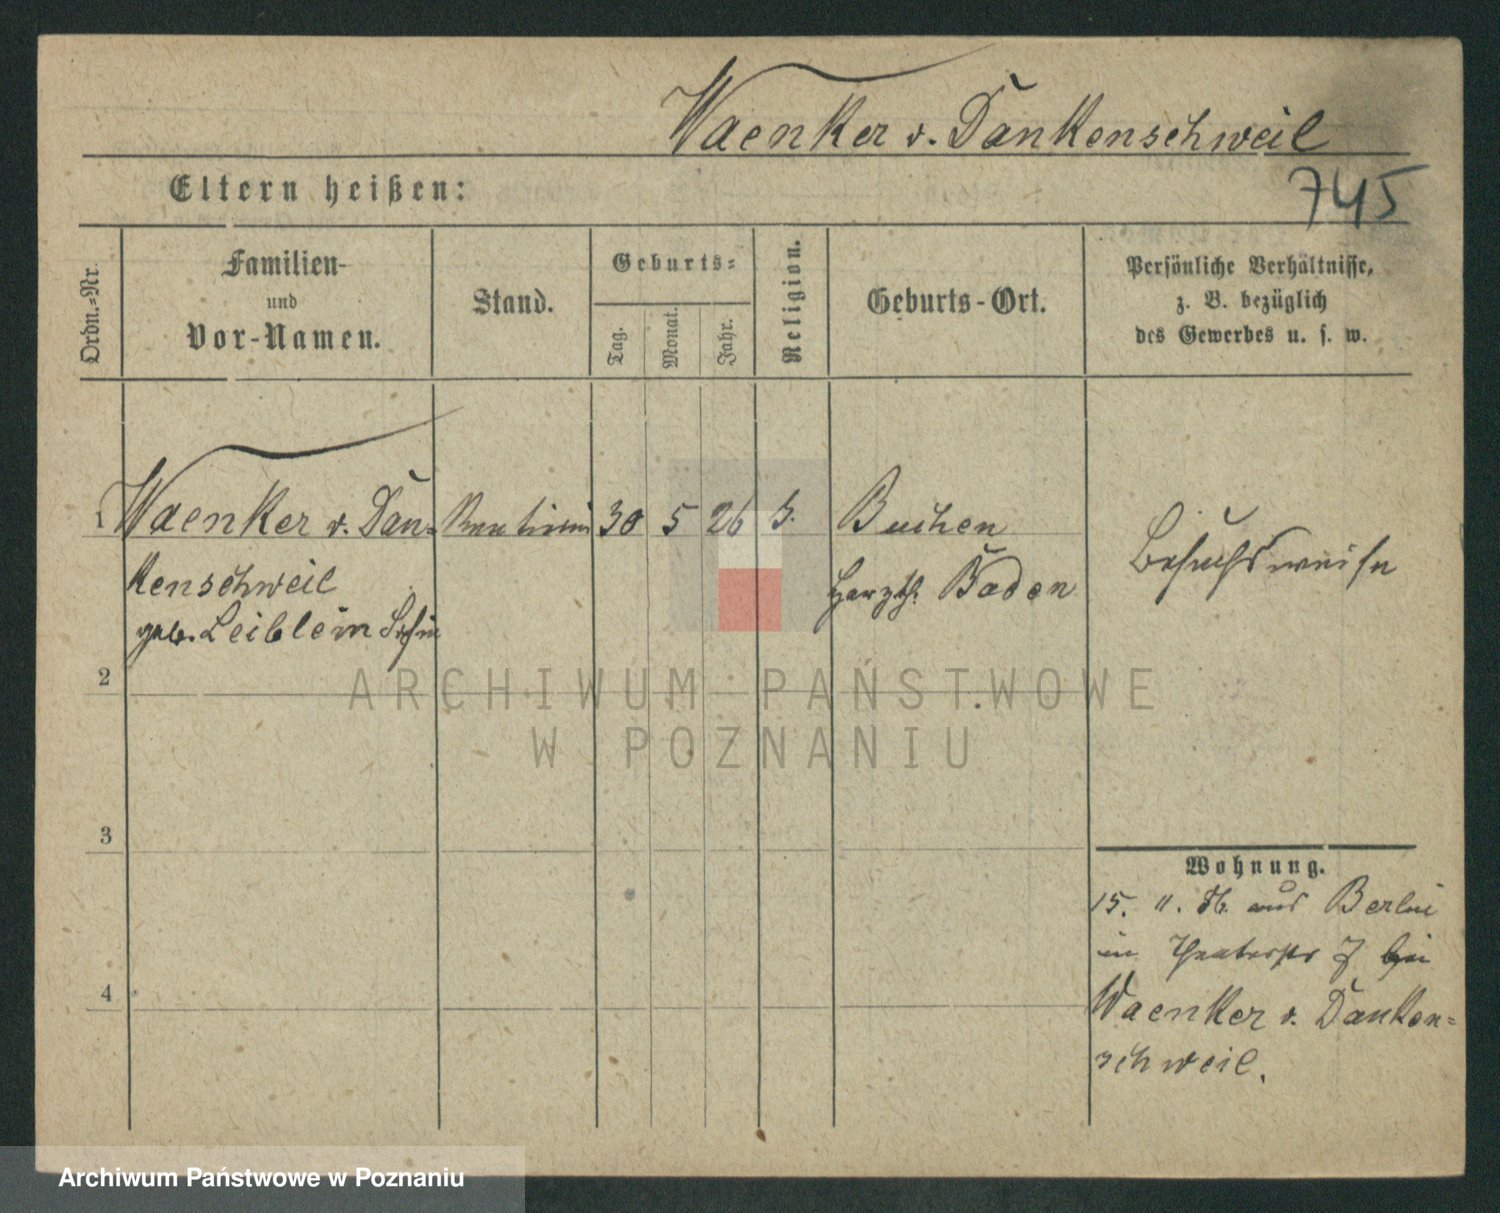 Waenker v. Dankenschweil
Eltern heißen:
745
Ordn.=Nr.
Familien-
und
Vor-Namen.
Stand.
Geburts=
Tag.
Monat.
Jahr.
Religion.
Geburts-Ort.
Persönliche Verhältnisse,
z. B. bezüglich
des Gewerbes u. s. w.
1 Waenker v. Dan= 30 5 26 Buchen
kenschweil
geb. Leiblein
Baden
Besuchsweise
2
3
4
Wohnung.
15. 11. aus Berlin
in Theaterstr 7 bei
Waenker v. Danken=
schweil.
ARCHIWUM PAŃSTWOWE
W POZNANIU
Archiwum Państwowe w Poznaniu